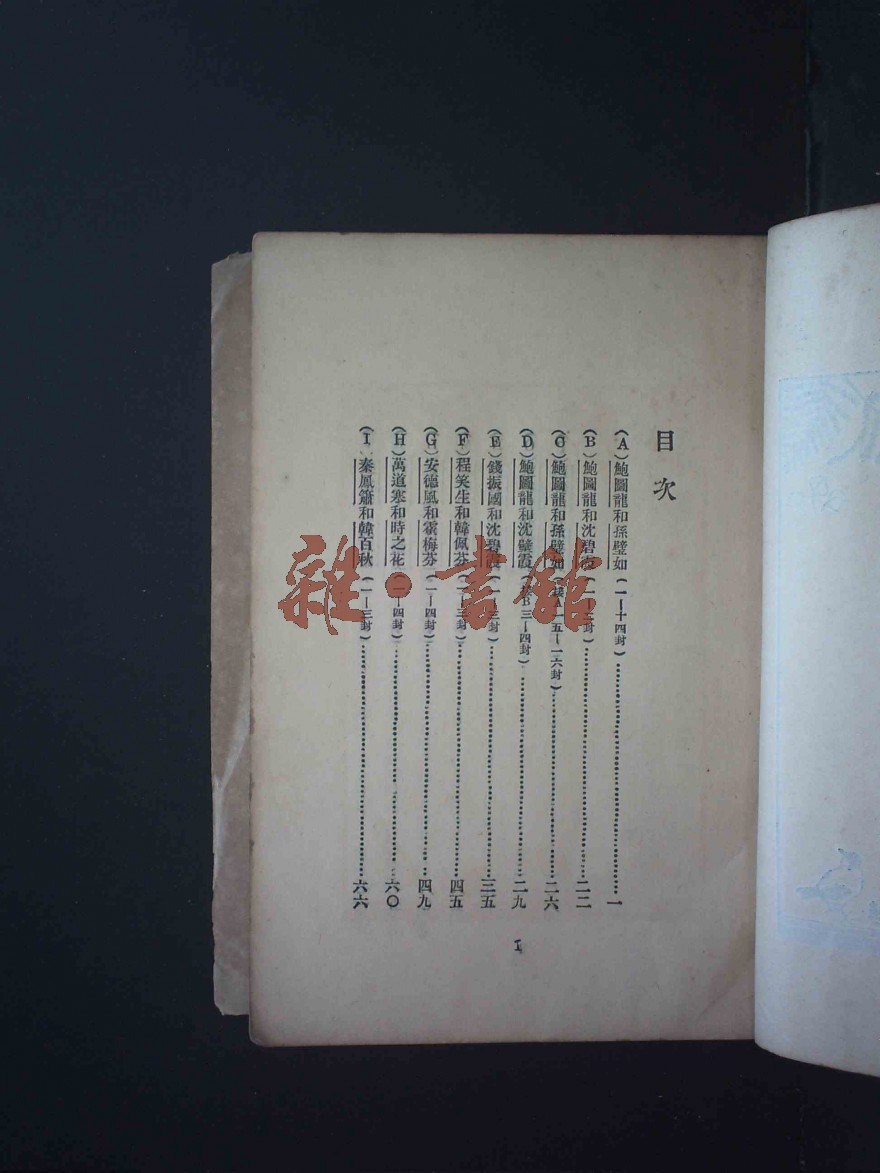 目次
(A)鮑圖龍和孫璧如(一—十四封)……一
(B)鮑圖龍和沈碧霞(一—三封)……二二
(C)鮑圖龍和孫璧如(接A一五—一六封)……二六
(D)鮑圖龍和沈璧霞(接B三—四封)……二九
(E)錢振國和沈碧霞(一—三封)……三五
(F)程笑生和韓佩芬(一—三封)……四五
(G)安德風和霍梅芬(一—四封)……四九
(H)萬道寒和時之花(一—四封)……六〇
(I)秦鳳簫和韓百秋(一—三封)……六六
I
雜·書館